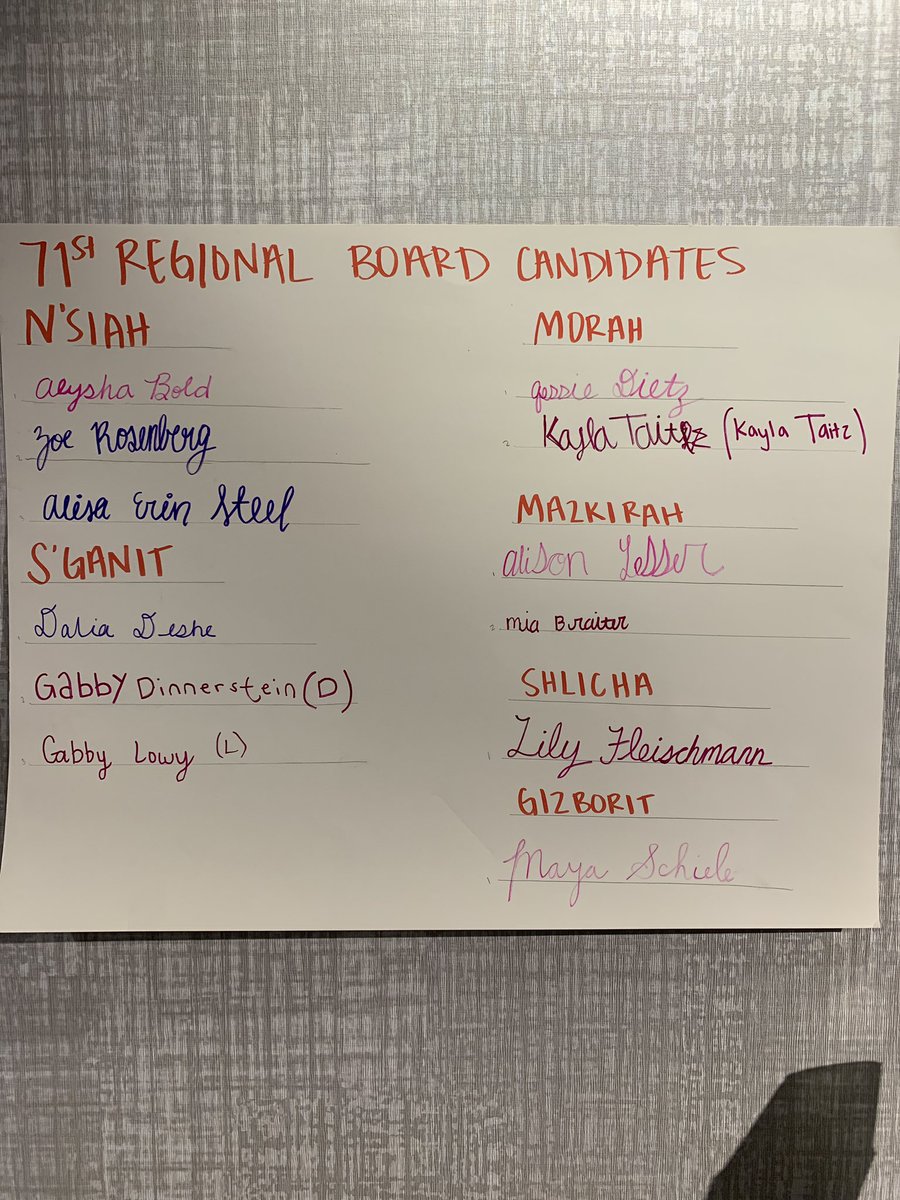 71ST REGIONAL BOARD CANDIDATES
N'SIAH
alysha Bold
Zoe Rosenberg
alisa Erin Steel
S'GANIT
Dalia Deshe
Gabby Dinnerstein (D)
Gabby Lowy (L)
MORAH
Jessie Dietz
Kayla Taitz (Kayla Taitz)
MAZKIRAH
alison Lesser
mia Braiter
SHLICHA
Lily Fleischmann
GIZBORIT
Maya Schiele